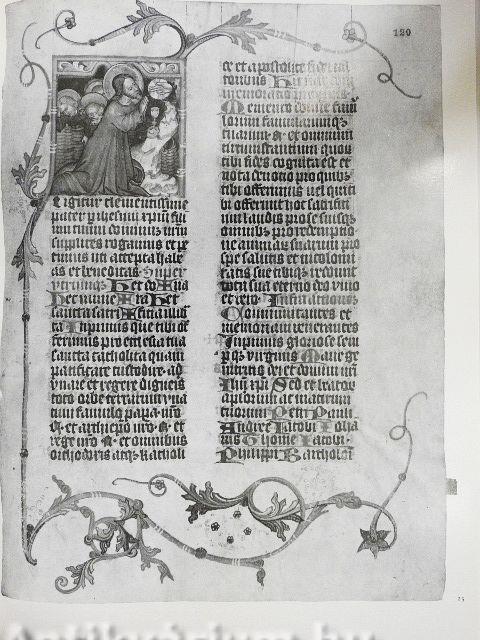 120
te igitur clementissime
pater p ihesum xpm filiu
tuum dominum nrm
supplices rogamus et pe
timus uti accepta habe
as et benedicas Super
utrumq Hec dona
Hec munera Hec
sancta sacrificia illiba
ta Inprimis que tibi of
ferimus pro ecclesia tua
sancta catholica quam
pacificare custodire ad
unare et regere digneris
toto orbe terrarum una
cum famulo papa nro
N et archiepo nro N et
rege nro N et omnibus
orthodoxis atq katholi
ce et apostolice fidei cul
toribus
Memento domine famu
lorum famularumq
tuarum N et omnium
circumstantium quoru
tibi fides cognita est et
nota devotio pro quib
tibi offerimus vel qui ti
bi offerunt hoc sacrifici
um laudis pro se suisq
omnibus pro redemptio
ne animarum suarum pro
spe salutis et incolumi
tatis sue tibiq reddunt
vota sua eterno deo vivo
et vero Infra actionem
Comunicantes et
memoriam venerantes
Inprimis gloriose sem
p q virginis Marie ge
nitricis dei et domini nri
Ihu xpi Sed et beator
aplorum ac martirum
tuorum Petri Pauli
Andree Iacobi Iohan
nis Thome Iacobi
Philippi Bartholom
25